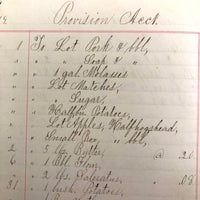 Provision Acct.
1 To Lot Pork & bbl,
" " " Soap & "
" " 1 gal. Molasses
" " Lot Matches,
" " " Sugar,
" " Half bu Potatoes,
" " Lot Apples, Half hogshead,
" " Small Box, " bbl,
2 " 5 lbs. Butter, @ 20
6 " 1 Bbl Flour,
" " 2 lbs. Saleratus, " 08
31 " 1 bush. Potatoes,